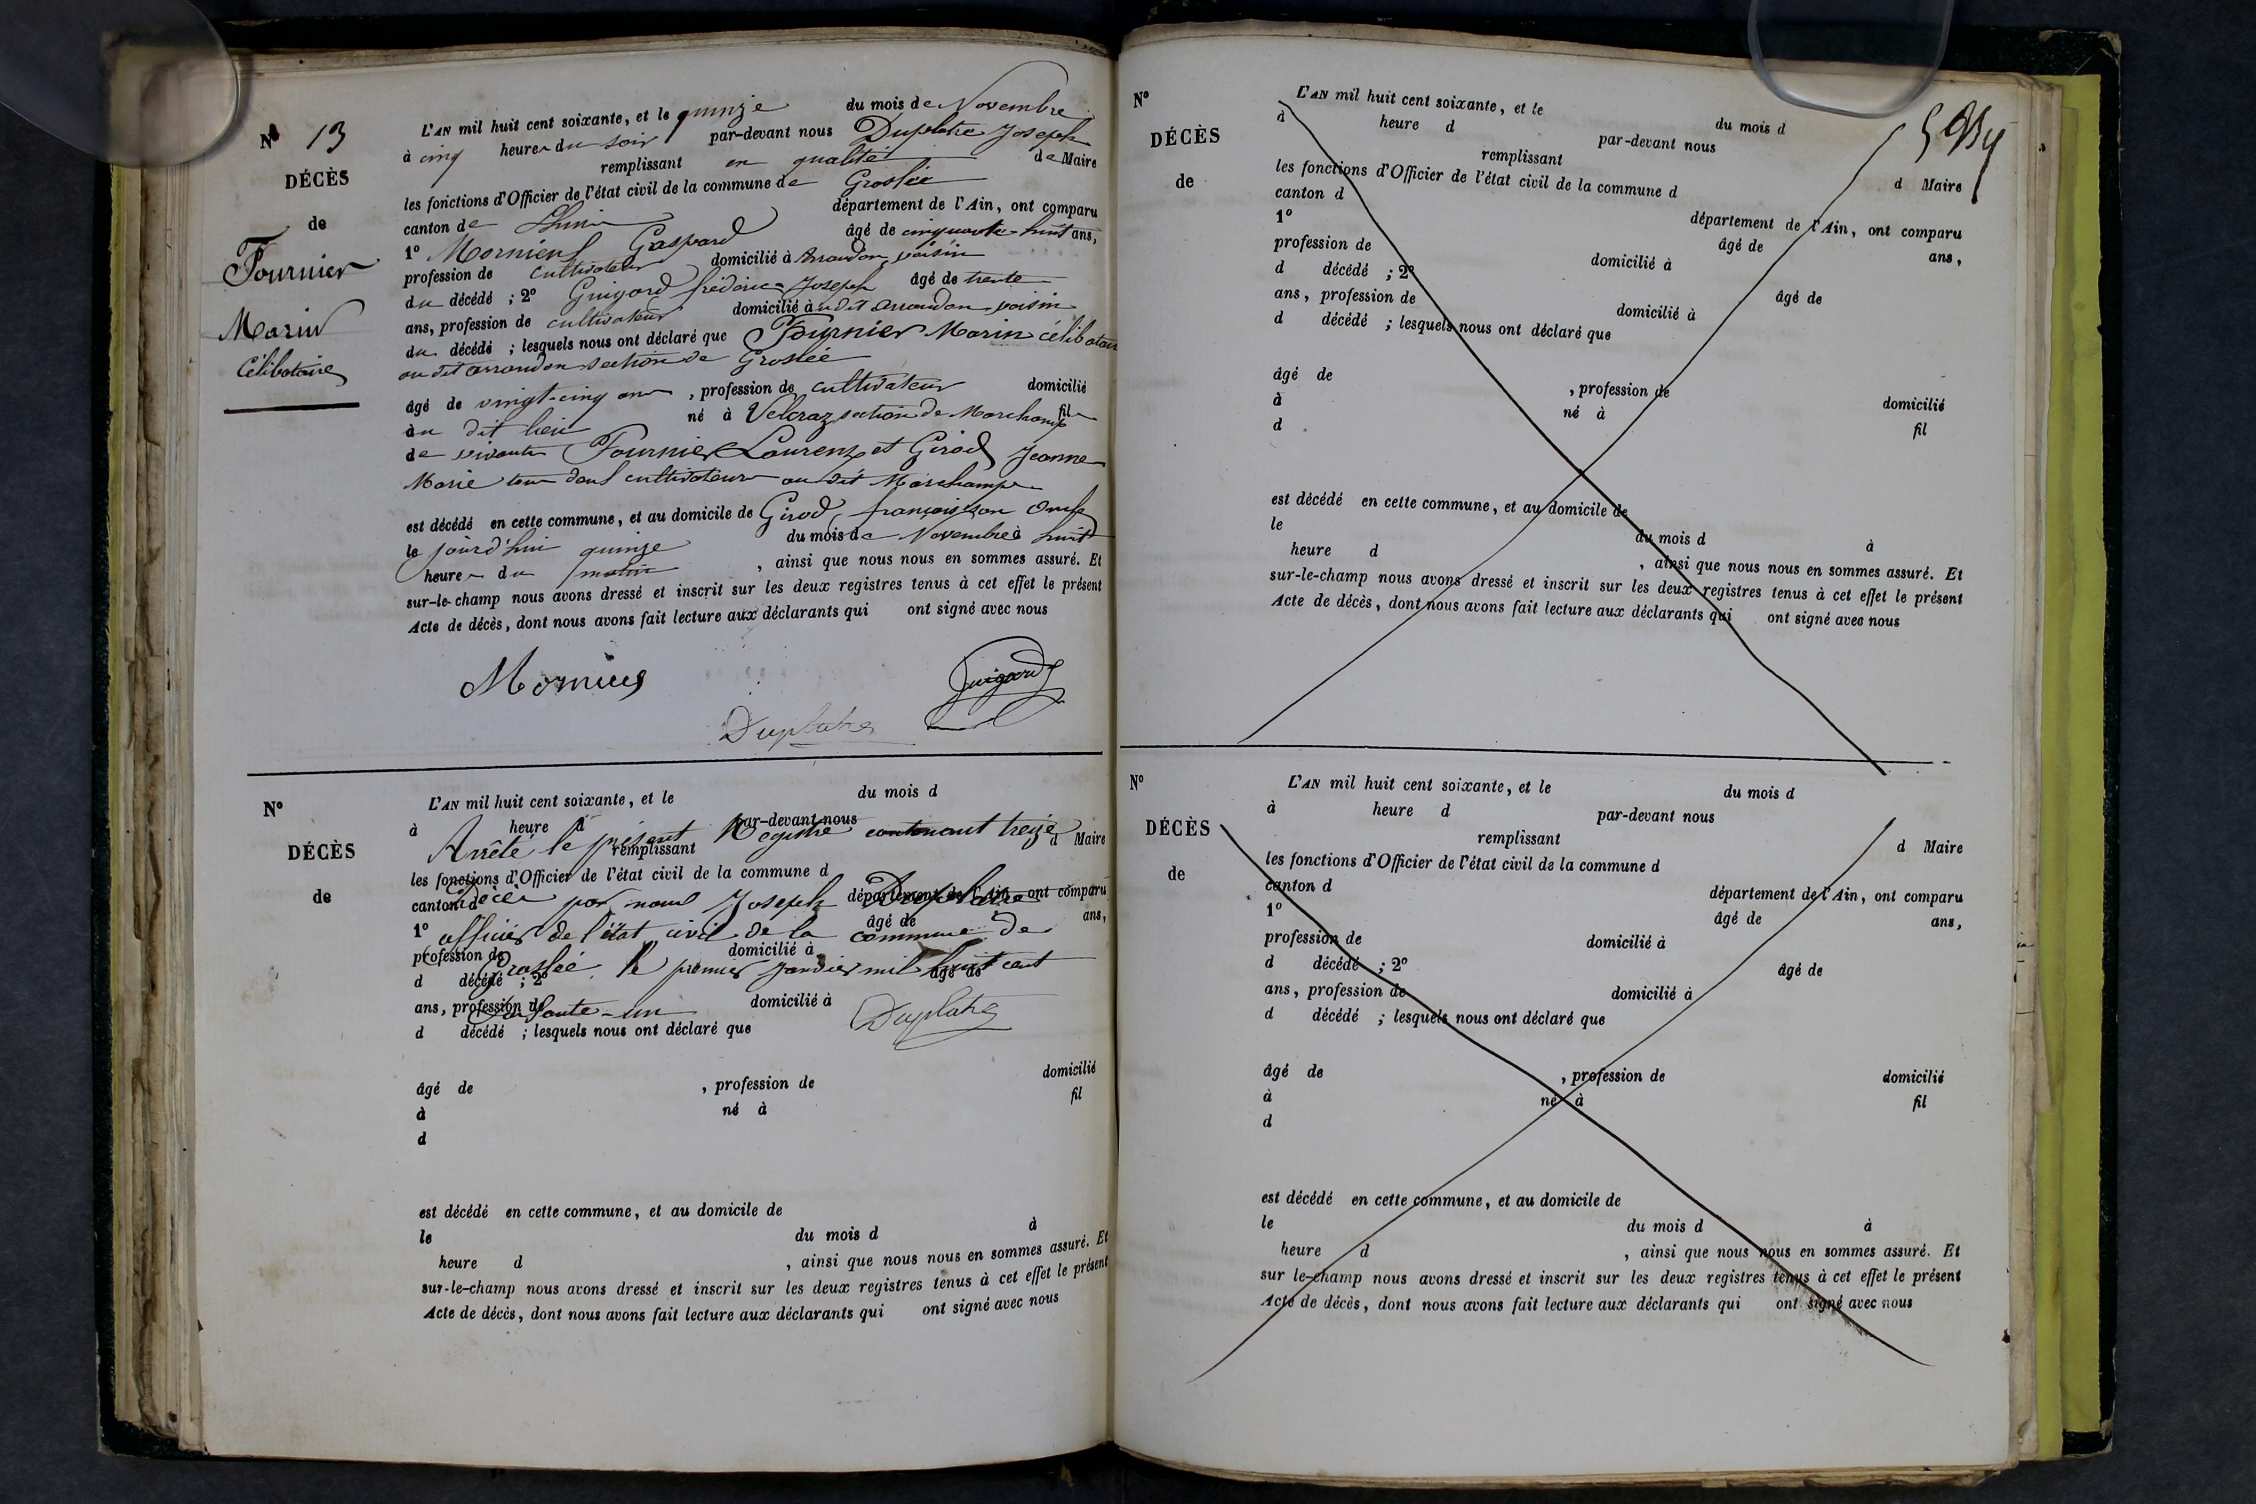 N° 13
DÉCÈS
de
Fournier
Marin
Célibataire
L'AN mil huit cent soixante, et le quinze du mois de Novembre
à cinq heures du soir par-devant nous Duplatre Joseph
remplissant en qualité de Maire
les fonctions d'Officier de l'état civil de la commune de Groslée
canton de Lhuis département de l'Ain, ont comparu
1° Gaspard âgé de cinquante-huit ans,
profession de cultivateur domicilié à Arrandon voisin
du décédé ; 2° Guigard fréderic Joseph âgé de trente
ans, profession de cultivateur domicilié au dit arrandon voisin
du décédé ; lesquels nous ont déclaré que Fournier Marin célibataire
au dit arrandon section de Groslée
âgé de vingt-cinq ans , profession de cultivateur domicilié
au dit lieu né à section de Marchamp fils
de vivants Fournier Laurent et Girod Jeanne
Marie tous deux cultivateurs au dit Marchamp
est décédé en cette commune, et au domicile de Girod françois son Oncle
le jourd'hui quinze du mois de Novembre à huit
heures du matin , ainsi que nous nous en sommes assuré. Et
sur-le-champ nous avons dressé et inscrit sur les deux registres tenus à cet effet le présent
Acte de décès, dont nous avons fait lecture aux déclarants qui ont signé avec nous
Guigard
Duplatre
N°
DÉCÈS
de
L'AN mil huit cent soixante, et le du mois d
à heure d par-devant nous
Arrêté le présent Registre contenant treize
remplissant d Maire
les fonctions d'Officier de l'état civil de la commune d
canton d département de l'Ain, ont comparu
Décès par nous Joseph Duplatre
1° âgé de ans,
officier de l'état civil de la commune de
profession de domicilié à
Groslée le premier janvier mil huit cent
d décédé ; 2° âgé de
ans, profession de domicilié à
soixante-un Duplatre
d décédé ; lesquels nous ont déclaré que
âgé de , profession de domicilié
à né à fil
d
est décédé en cette commune, et au domicile de
le du mois d à
heure d , ainsi que nous nous en sommes assuré. Et
sur-le-champ nous avons dressé et inscrit sur les deux registres tenus à cet effet le présent
Acte de décès, dont nous avons fait lecture aux déclarants qui ont signé avec nous
N°
DÉCÈS
de
L'AN mil huit cent soixante, et le du mois d
à heure d par-devant nous
remplissant d Maire
les fonctions d'Officier de l'état civil de la commune d
canton d département de l'Ain, ont comparu
1° âgé de ans,
profession de domicilié à
d décédé ; 2° âgé de
ans, profession de domicilié à
d décédé ; lesquels nous ont déclaré que
âgé de , profession de domicilié
à né à fil
d
est décédé en cette commune, et au domicile de
le du mois d à
heure d , ainsi que nous nous en sommes assuré. Et
sur-le-champ nous avons dressé et inscrit sur les deux registres tenus à cet effet le présent
Acte de décès, dont nous avons fait lecture aux déclarants qui ont signé avec nous
N°
DÉCÈS
de
L'AN mil huit cent soixante, et le du mois d
à heure d par-devant nous
remplissant d Maire
les fonctions d'Officier de l'état civil de la commune d
canton d département de l'Ain, ont comparu
1° âgé de ans,
profession de domicilié à
d décédé ; 2° âgé de
ans, profession de domicilié à
d décédé ; lesquels nous ont déclaré que
âgé de , profession de domicilié
à né à fil
d
est décédé en cette commune, et au domicile de
le du mois d à
heure d , ainsi que nous nous en sommes assuré. Et
sur le-champ nous avons dressé et inscrit sur les deux registres tenus à cet effet le présent
Acte de décès, dont nous avons fait lecture aux déclarants qui ont signé avec nous